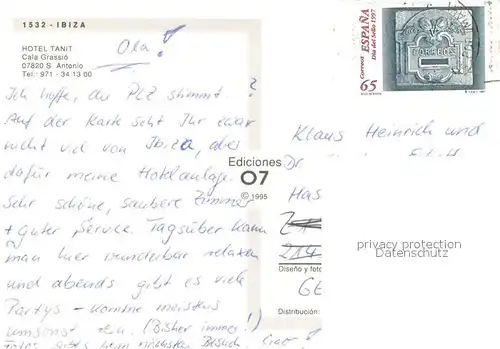 1532 - IBIZA
HOTEL TANIT
Cala Grassió
07820 S. Antonio
Tel.: 971 - 34 13 00
Ola!
Ich hoffe, die PLZ stimmt?
Auf der Karte seht Ihr zwar
nicht viel von Ibiza, aber
dafür meine Hotelanlage.
Sehr schöne, saubere Zimmer
+ guter Service. Tagsüber kann
man hier wunderbar relaxen
und abends gibt es viele
Partys - komme meistens
umsonst rein. (Bisher immer!)
Fotos gibts beim nächsten Besuch. Ciao!
Ediciones
07
© 1995
Diseño y foto
Distribución:
Correos ESPAÑA
Día del Sello 1997
65
CORREOS
Klaus Heinrich und
Dr
Has
214
GE
privacy protection
Datenschutz